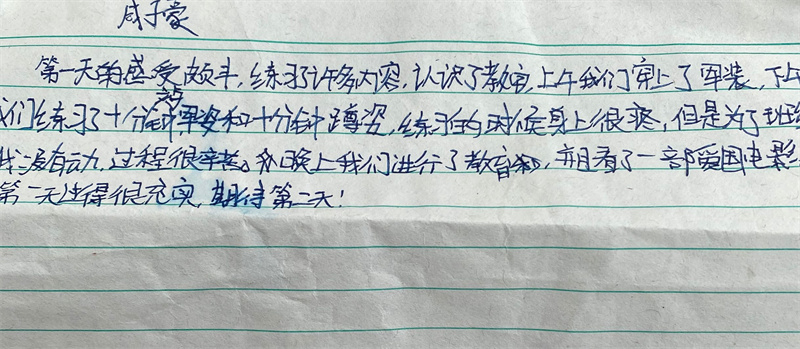 咸子蒙
第一天的感受颇丰,练习了许多内容,认识了教官,上午我们穿上了军装,下午
我们练习了十分钟站军姿和十分钟蹲姿,练习的时候身上很疼,但是为了班级
我没有动,过程很辛苦。和晚上我们进行了教育和,并且看了一部爱国电影
第一天过得很充实,期待第二天!